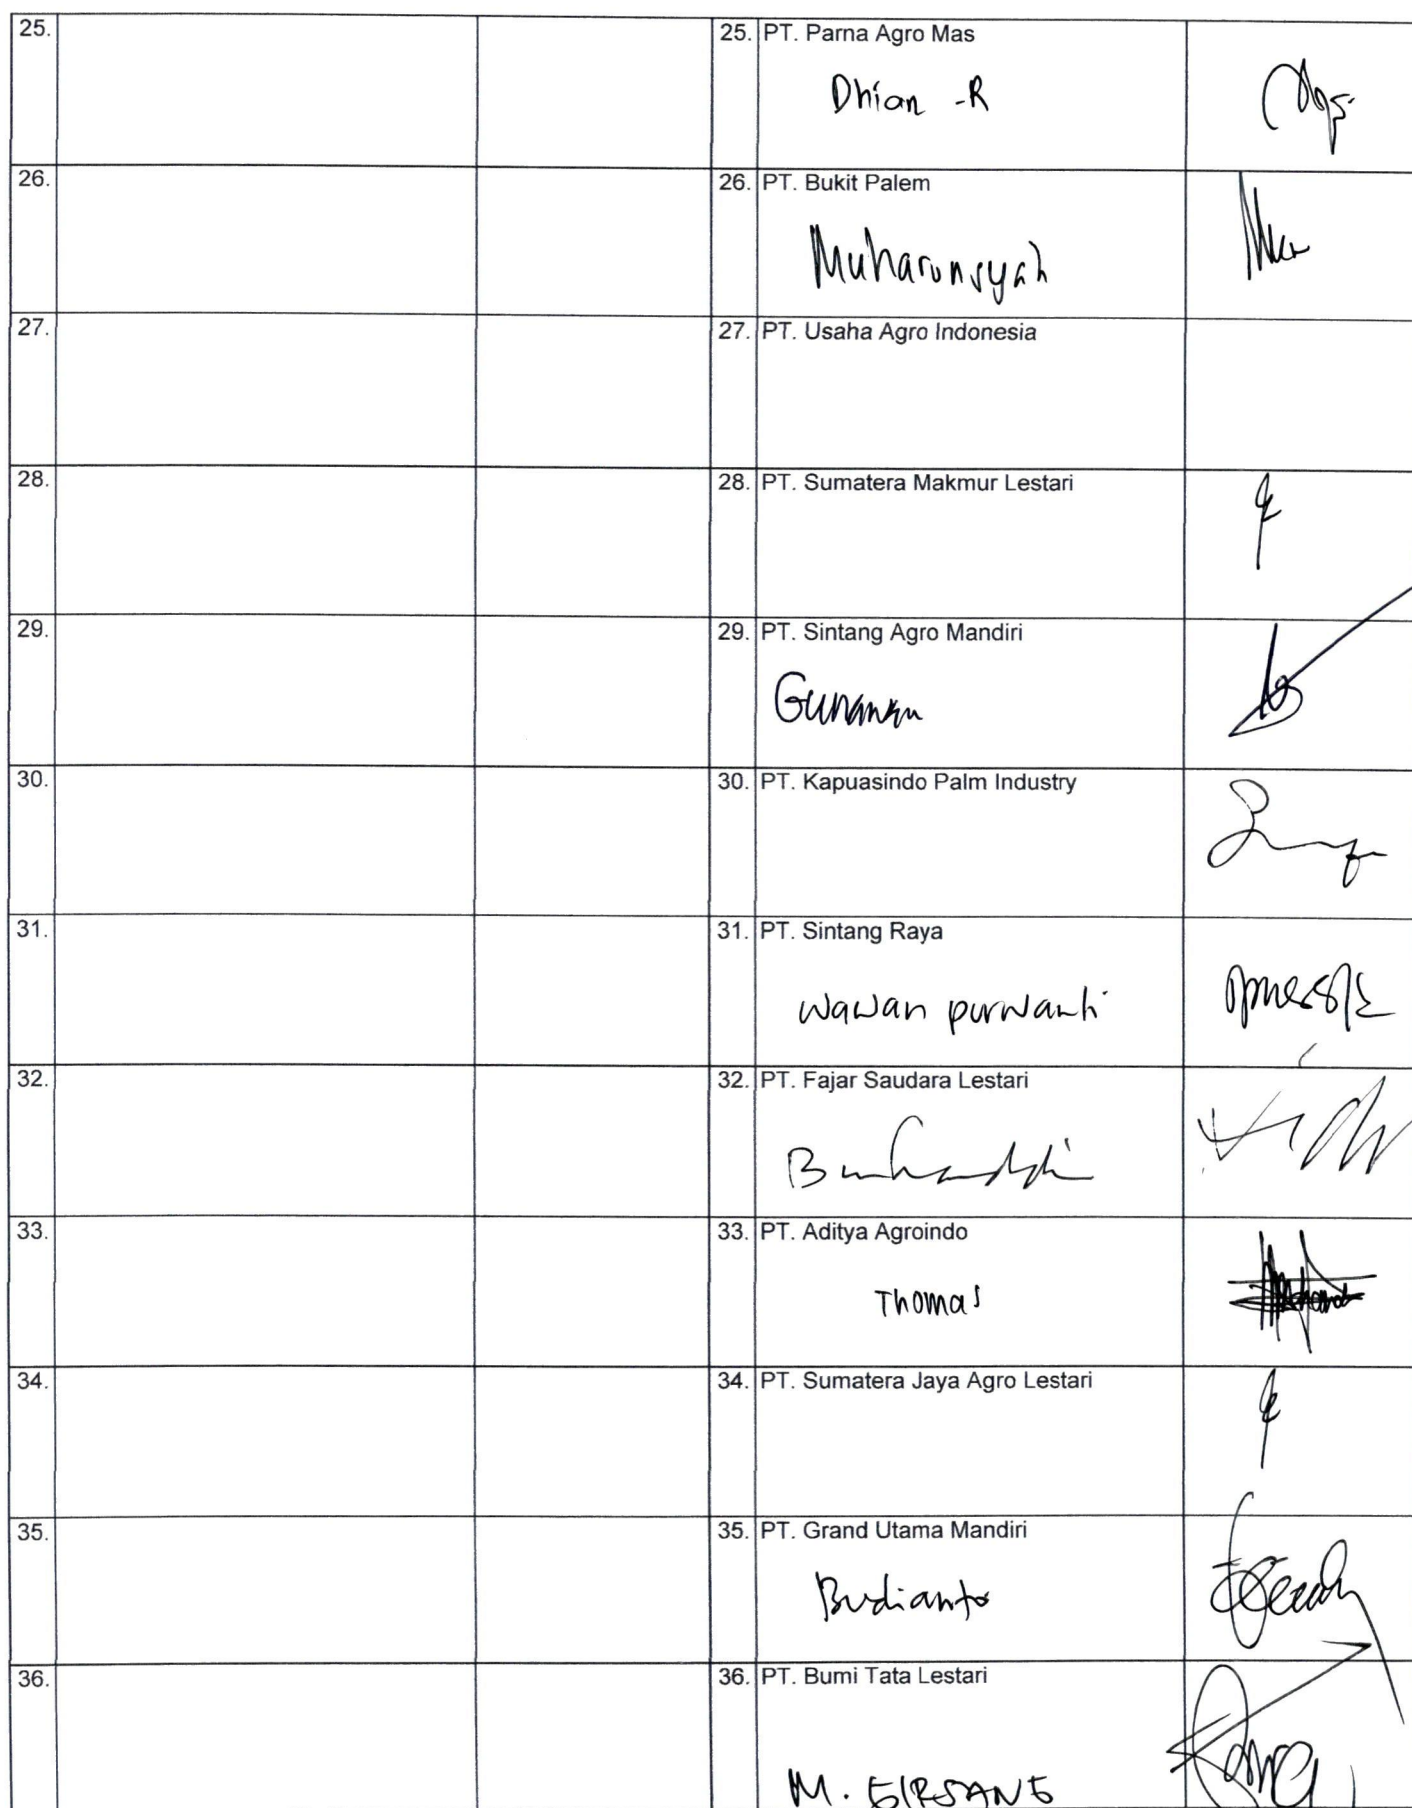 25. 25. PT. Parna Agro Mas
Dhian -R
26. 26. PT. Bukit Palem
Muharunsyah
27. 27. PT. Usaha Agro Indonesia
28. 28. PT. Sumatera Makmur Lestari
29. 29. PT. Sintang Agro Mandiri
Gunawan
30. 30. PT. Kapuasindo Palm Industry
31. 31. PT. Sintang Raya
Wawan purwanti
32. 32. PT. Fajar Saudara Lestari
33. 33. PT. Aditya Agroindo
Thomas
34. 34. PT. Sumatera Jaya Agro Lestari
35. 35. PT. Grand Utama Mandiri
Budianto
36. 36. PT. Bumi Tata Lestari
M.